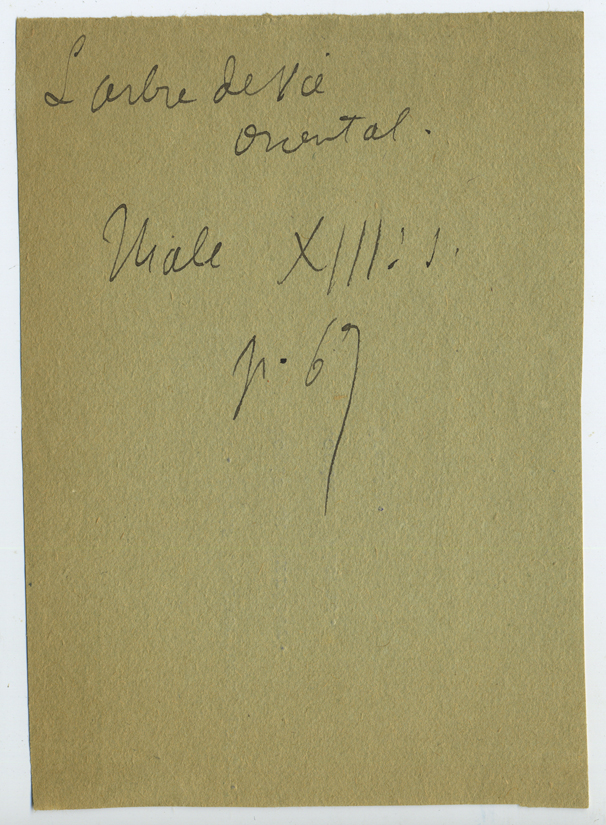 L'arbre de Vie
oriental.
Male XIIIe s.
p. 67